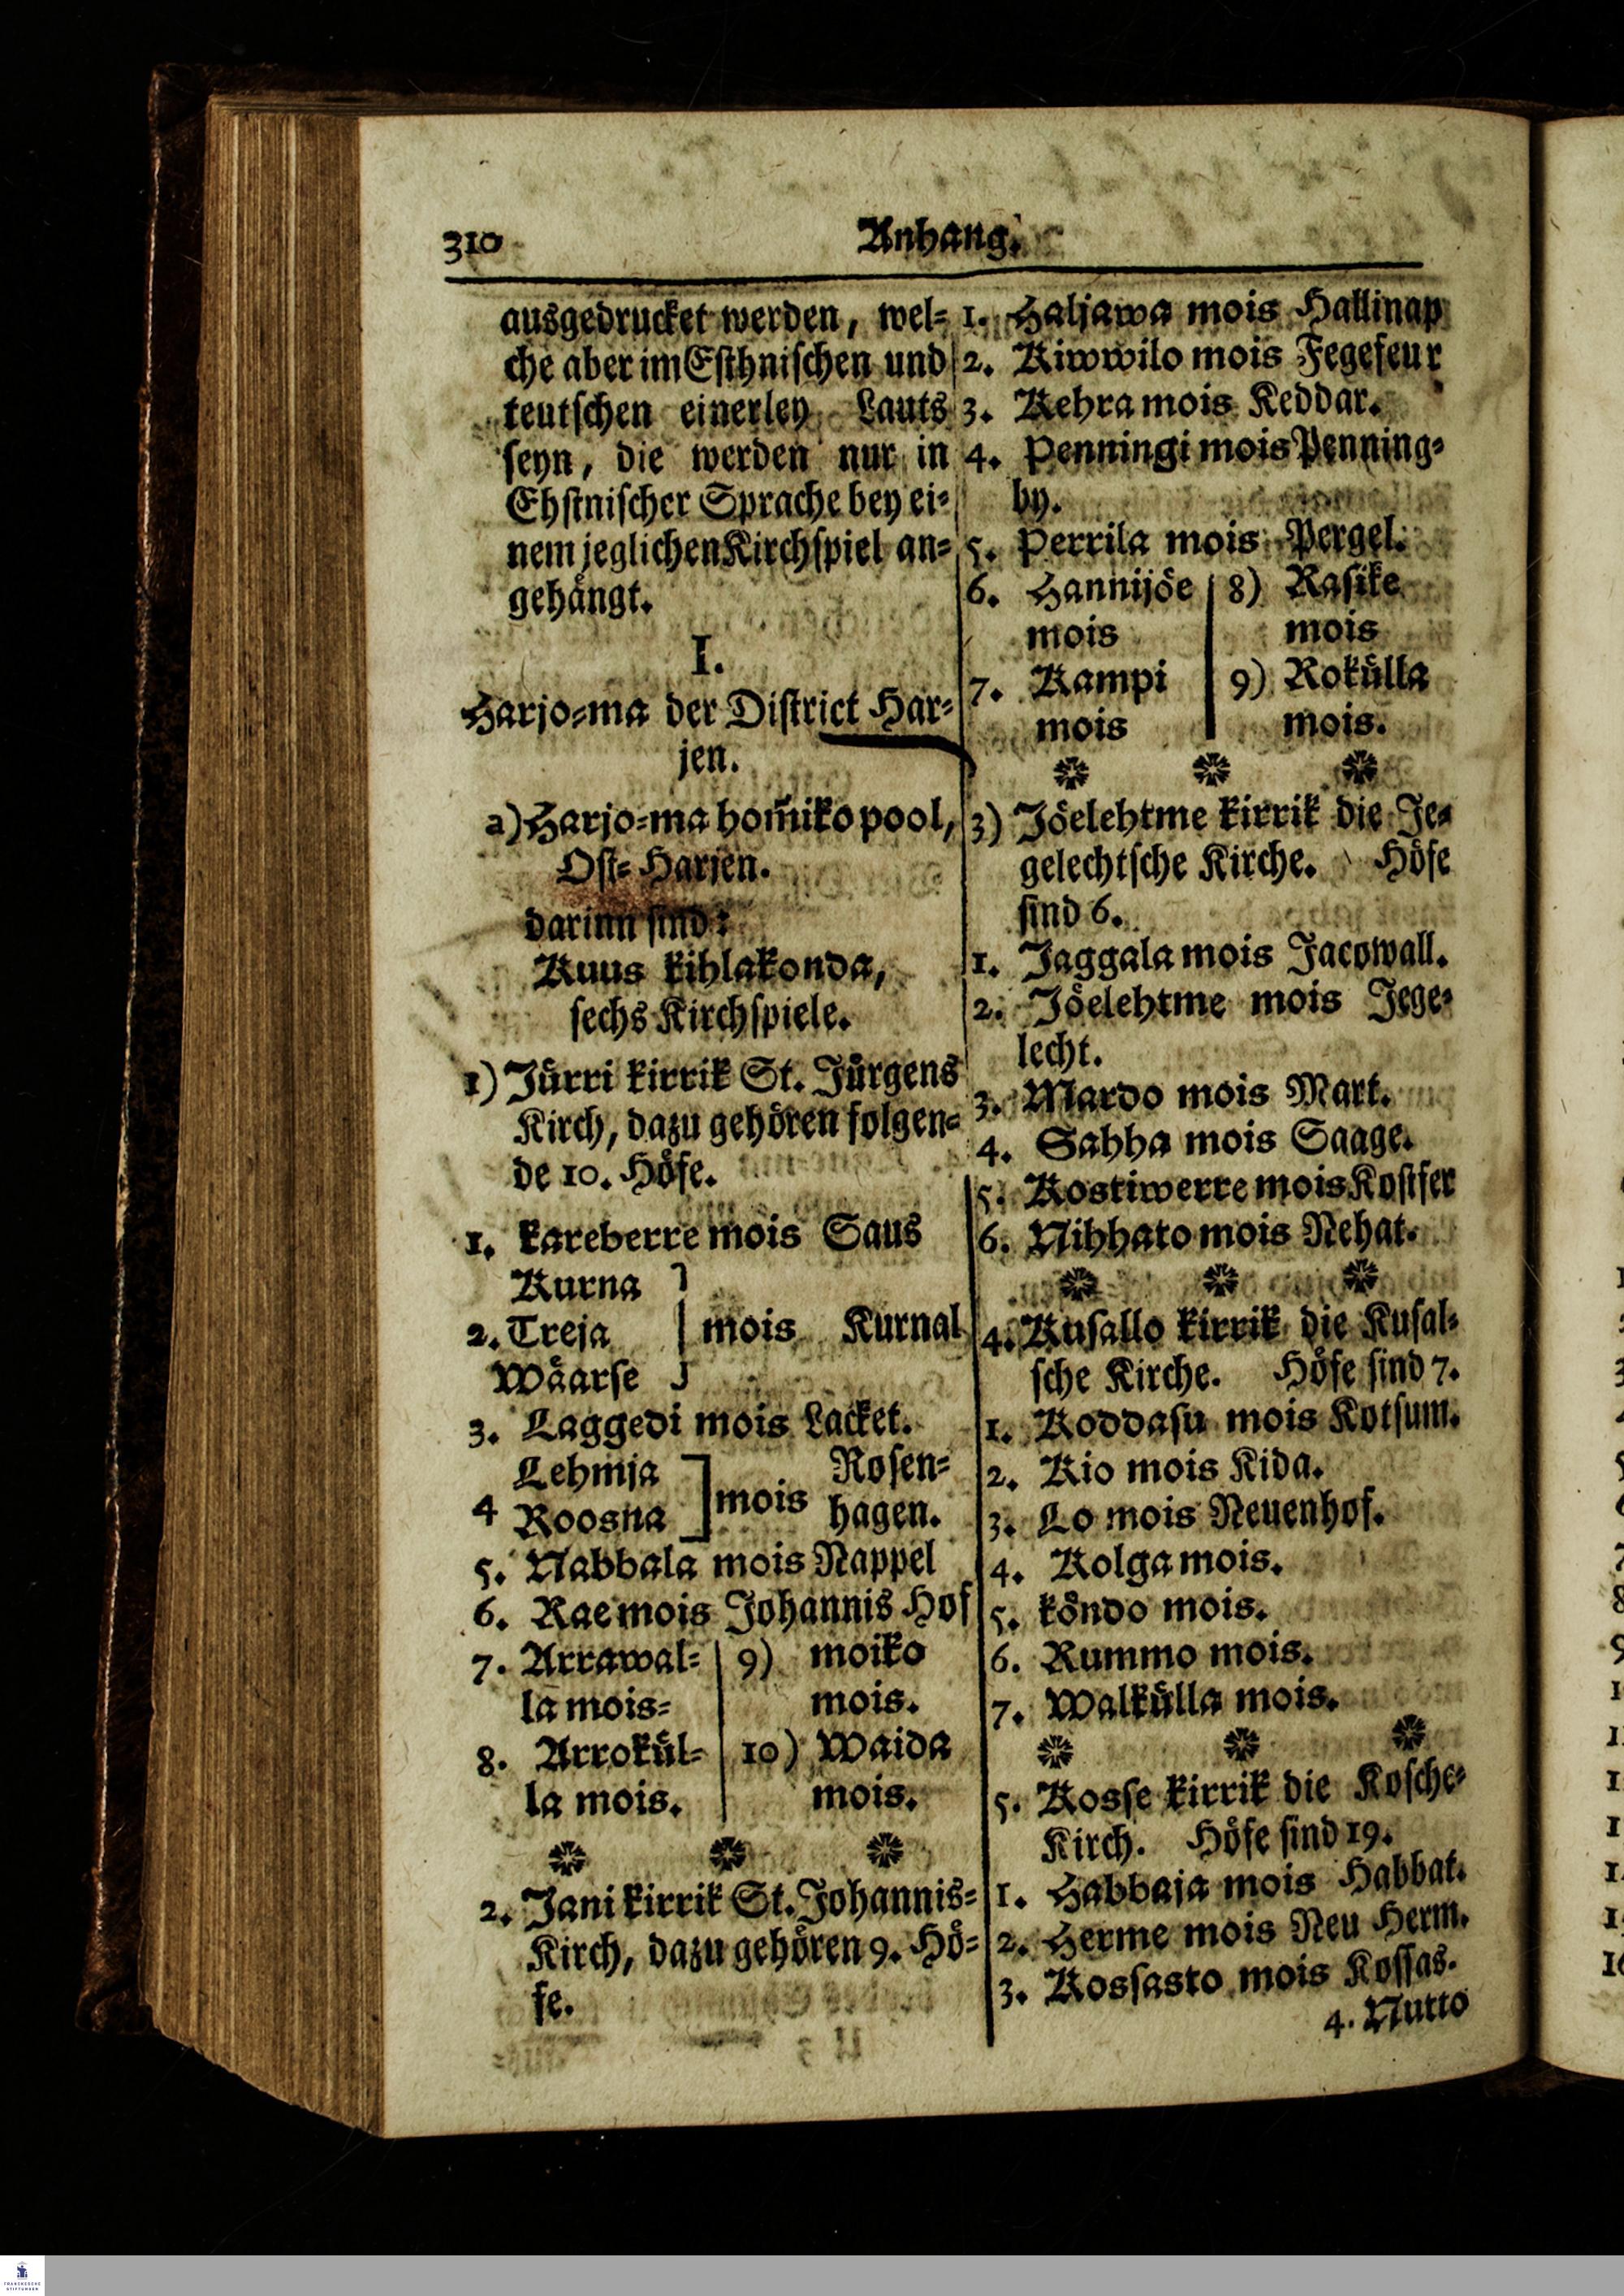 310
Anhang.
ausgedrucket werden, wel=
che aber im Esthnischen und
teutschen einerley Lauts
seyn, die werden nur in
Ehstnischer Sprache bey ei=
nem jeglichen Kirchspiel an=
gehångt.
I.
Harjo=ma der District Har=
jen.
a) Harjo=ma hom̃iko pool,
Ost=Harjen.
darinn sind:
Kuus kihlakonda,
sechs Kirchspiele.
1) Jůrri kirrik St. Jůrgens
Kirch, dazu gehören folgen=
de 10. Höfe.
1. kareberre mois Saus
Kurna
2. Treja mois Kurnal
Wäarse
3. Laggedi mois Lacket.
Lehmja Rosen=
4 Roosna mois hagen.
5. Nabbala mois Nappel
6. Rae mois Johannis Hof
7. Arrawal=
la mois=
8. Arrokůl=
la mois.
9) moiko
mois.
10) Waida
mois.
2. Jani kirrik St. Johannis=
Kirch, dazu gehören 9. Hö=
fe.
1. Haljawa mois Hallinap
2. Kiwwilo mois Fegefeur
3. Kehra mois Keddar.
4. Penningi mois Penning=
by.
5. Perrila mois Pergel.
6. Hannijöe
mois
7. Kampi
mois
8) Rasike
mois
9) Rokůlla
mois.
3) Jöelehtme kirrik die Je=
gelechtsche Kirche. Höfe
sind 6.
1. Jaggala mois Jacowall.
2. Jöelehtme mois Jege=
lecht.
3. Mardo mois Mart.
4. Sahha mois Saage.
5. Kostiwerre mois Kostfer
6. Nihhato mois Nehat.
4. Kusallo kirrik die Kusal=
sche Kirche. Höfe sind 7.
1. Koddasu mois Kotsum.
2. Kio mois Kida.
3. Lo mois Neuenhof.
4. Kolga mois.
5. köndo mois.
6. Rummo mois.
7. Walkůlla mois.
5. Kosse kirrik die Kosche=
Kirch. Höfe sind 19.
1. Habbaja mois Habbat.
2. Herme mois Neu Herm.
3. Kossasto mois Kossas.
4. Nutto
FRANCKESCHE
STIFTUNGEN